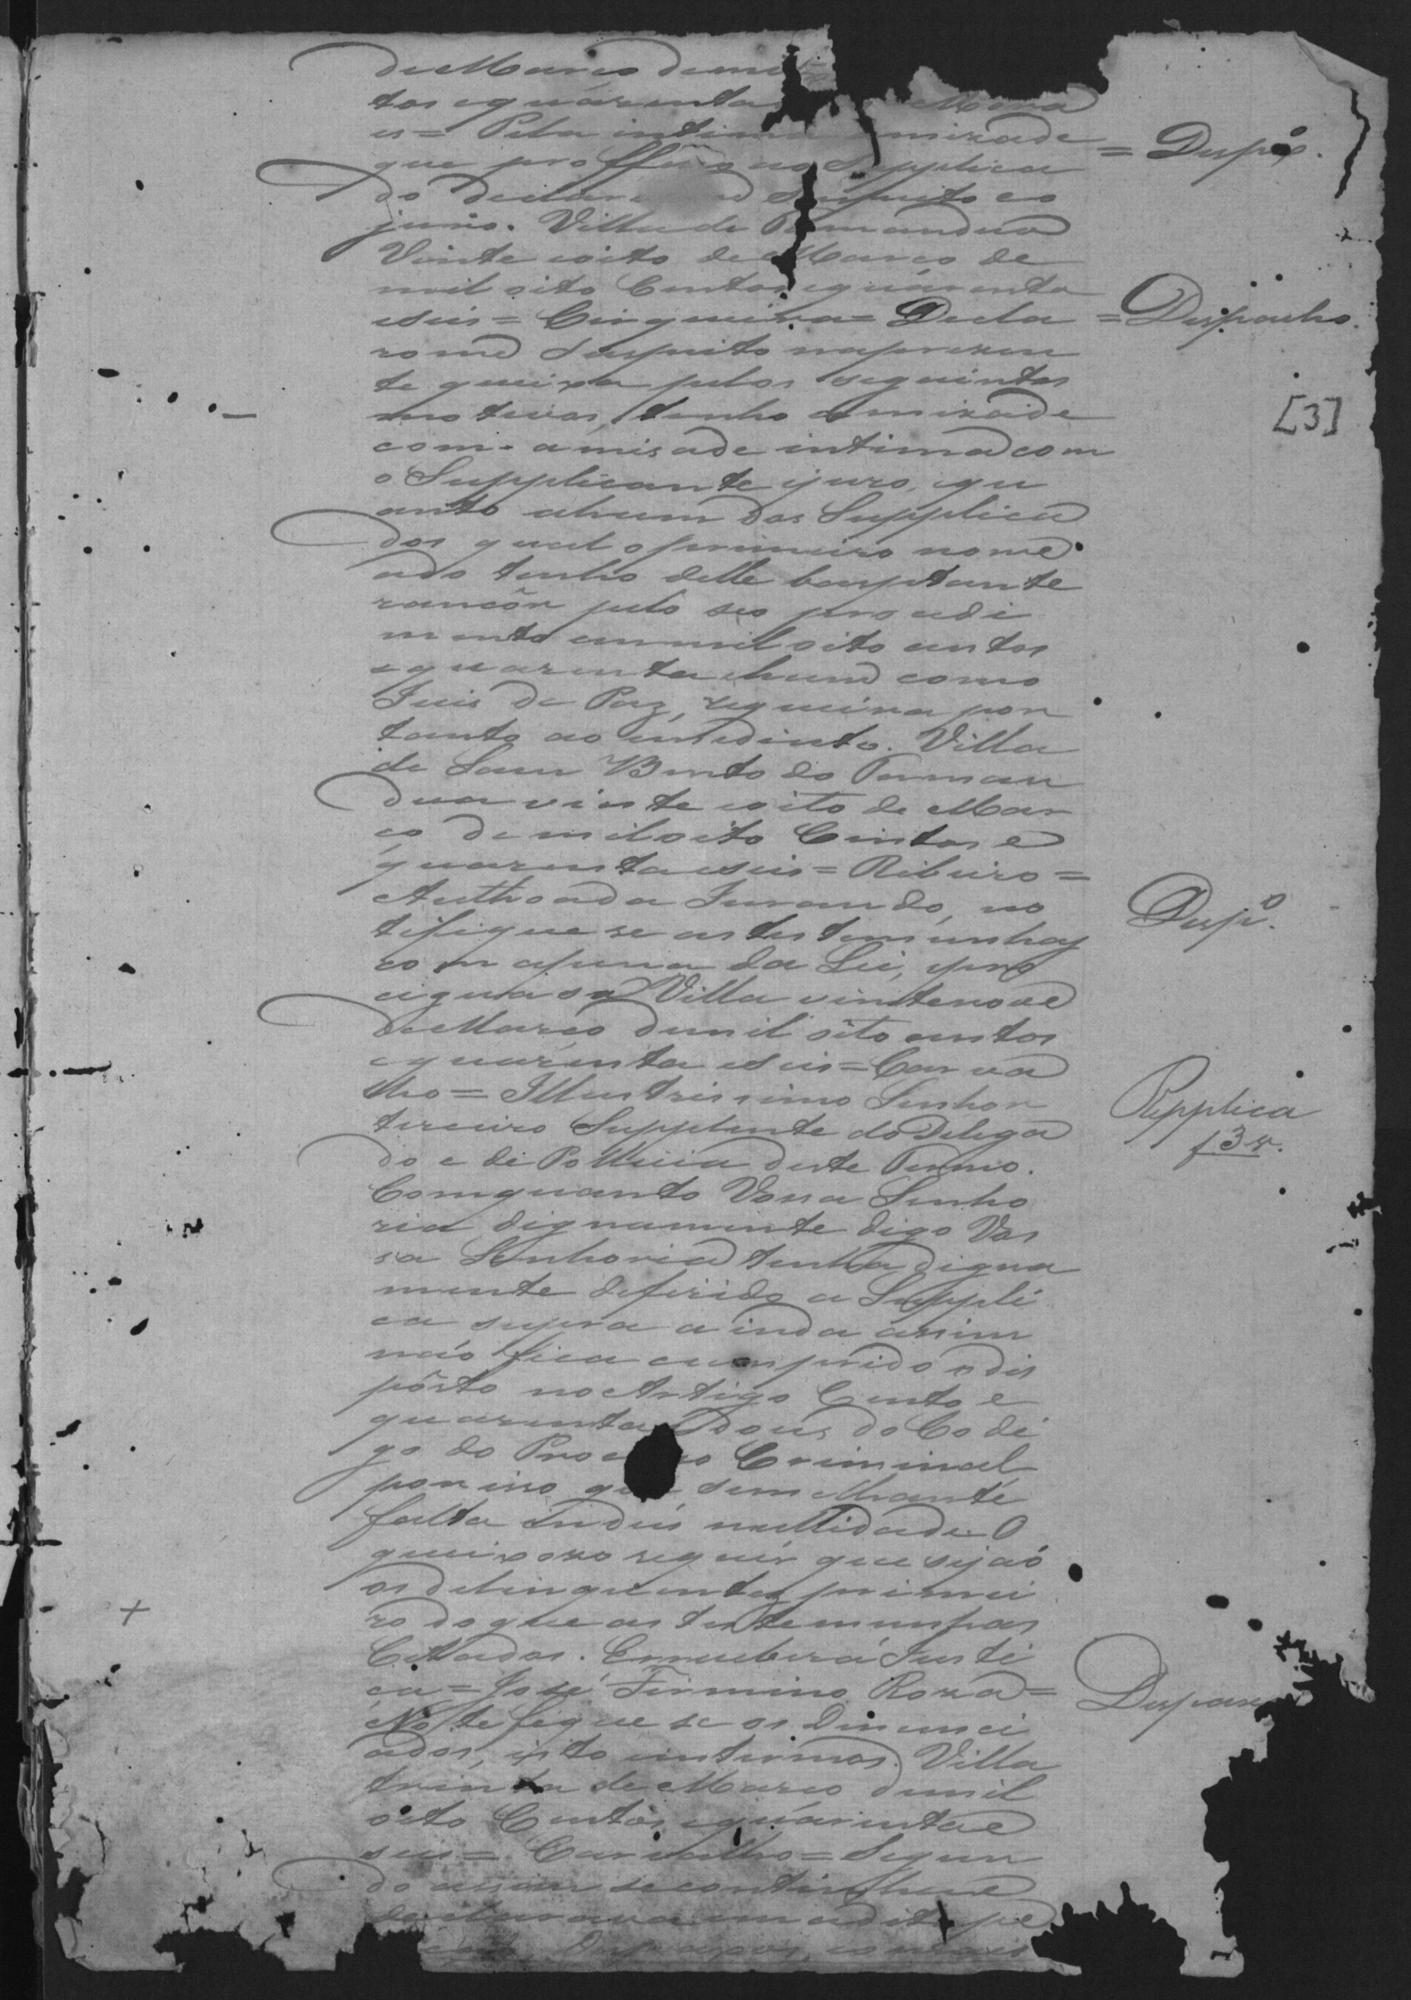 de Março de mil
tos e quarenta Mora
es = Pela intima amizade
que professo ao Supplica
do declaro suspeito e o
juro. Villa de Tamandua
Vinte e oito de Março de
mil oito Centos e quarenta
e seis = Cirqueira = Decla
= Desp.º
= Despacho.
rome Suspeito na prezen
te queixa pelos seguintes
motivos, tenho amizade
com. amisade intima com
o Supplicante e juro, e qu
anto ahum dos Supplica
dos qual o primeiro nome
ado tenho delle bastante
rancôr pelo seo procedi
mento em mil oito centos
e quarenta e hum como
Juis de Paz, requeira por
tanto ao imediato. Villa
de Sam Bento do Taman
dua vinte e oito de Mar
ço de mil oito Centos e
quarenta e seis = Ribeiro =
[3]
Authoada Jurando, no
tifique se as testemunhas
com a pena da Lei, e pro
ciga se Villa vinte nove
de Março de mil oito centos
e quarenta e seis = Carva
lho = Illustrissimo Senhor
Desp.º
terceiro Supplente do Delega
do e de Pollicia deste Termo.
Comquanto Vossa Senho
ria dignamente digo Vos
sa Senhoria tenha digna
mente deferido a Suppli
ca supra a inda assim
não fica cumprido o dis
pôsto no Artigo Cento e
quarenta e dous do Codi
go do Processo Criminal
por isso que semelhante
falta indús nullidade O
queixozo requér que sejaó
os delinquentes primei
ro do que as testemunhas
Citados. E recebera Justi
ça = José Firmino Roza =
Repplica
f 3 v.
Notefique se os Dinunci
ados, isto in termos. Villa
trinta de Março de mil
oito Centos e quarenta e
seis = Carvalho = Segun
do assim se continha e
declarava em a dita pe
Despaxo